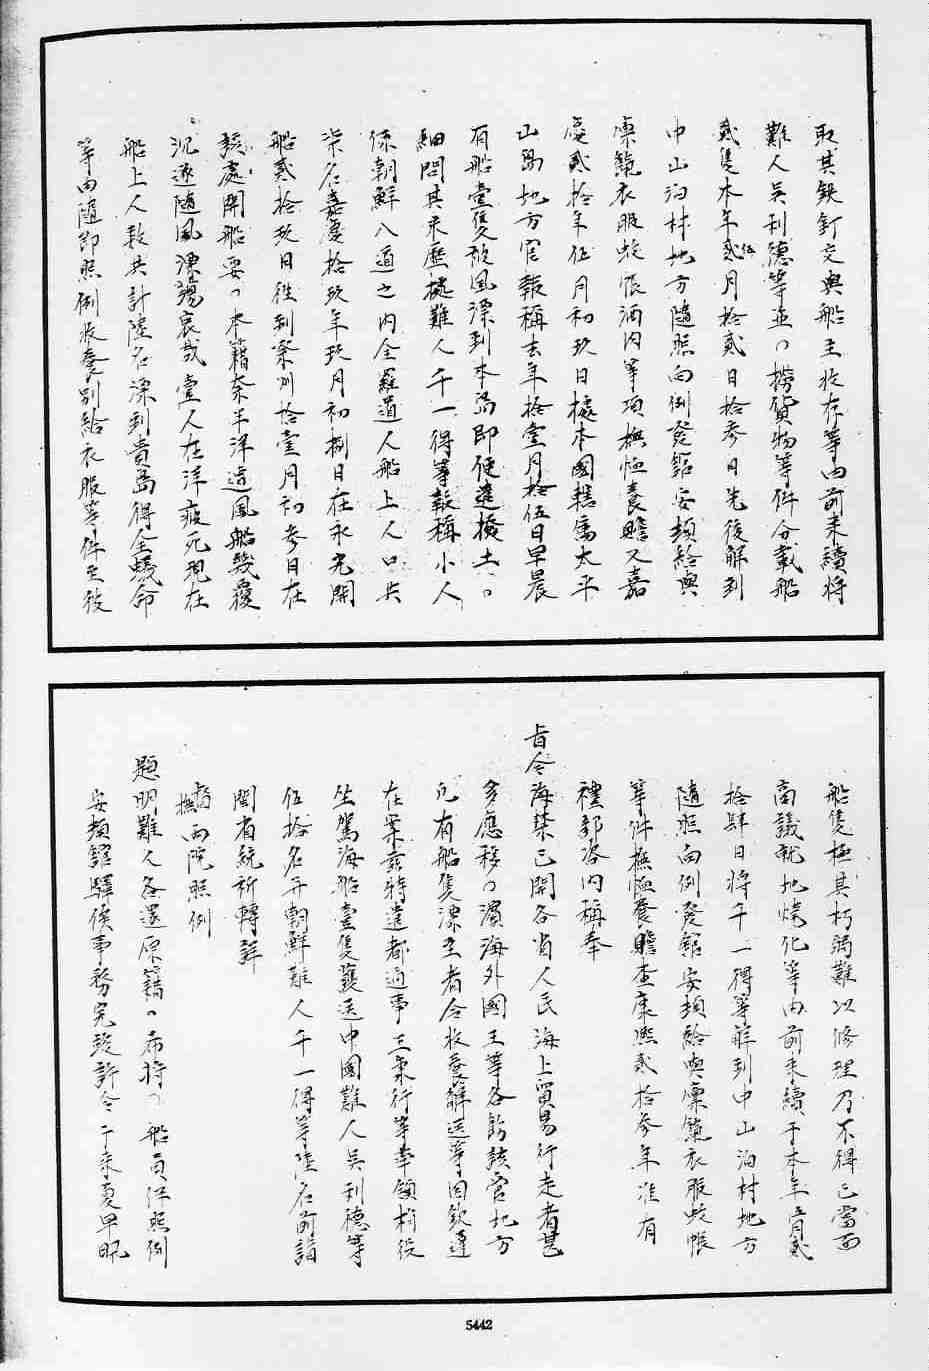 取其鉄釘交與船主收存等由前来續将
難人吳利德等並〻撈貨物等件分載船
貳隻本年貳伍月拾貳日拾参日先後解到
中山泊村地方隨照向例發館安頓給與
廩餼衣服蚊帳酒肉等項撫恤養贍又嘉
慶貳拾年伍月初玖日據本國轄属太平
山島地方官報稱去年拾壹月拾伍日早晨
有船壹隻被風漂到本島即便遣撥土〻
細問其来歴據難人千一得等報稱小人
係朝鮮八道之内全羅道人船上人口共
柒名嘉慶拾玖年玖月初捌日在永光開
船貳拾玖日徃到案川拾壹月初参日在
該處開船要〻本籍奈半洋遭風船幾覆
沉逐随風漂蕩哀哉壹人在洋疲死現在
船上人数共計陸名漂到貴島得全蟻命
等由随即照例収養別給衣服等件至彼
船隻極其朽弱難以修理乃不得已當面
商議就地焼化等由前来續于本年五月貳
拾肆日将千一得等解到中山泊村地方
隨照向例發館安頓給與廩餼衣服蚊帳
等件撫恤養贍查康熙貳拾参年准有
禮部咨内稱奉
旨今海禁已開各省人民海上貿易行走者甚
多應移〻濱海外國王等各飭該官地方
凡有船隻漂至者令收養解送等因欽遵
在案茲特遣都通事 等率領梢役
坐駕海船壹隻護送中國難人吳利德等
伍拾名并朝鮮難人千一得等陸名前詣
閩省統祈轉詳
督撫両院照例
題明難人各還原籍〻布将〻船員洋照例
安頓館驛俟事務完竣許令于来夏早帆
5442